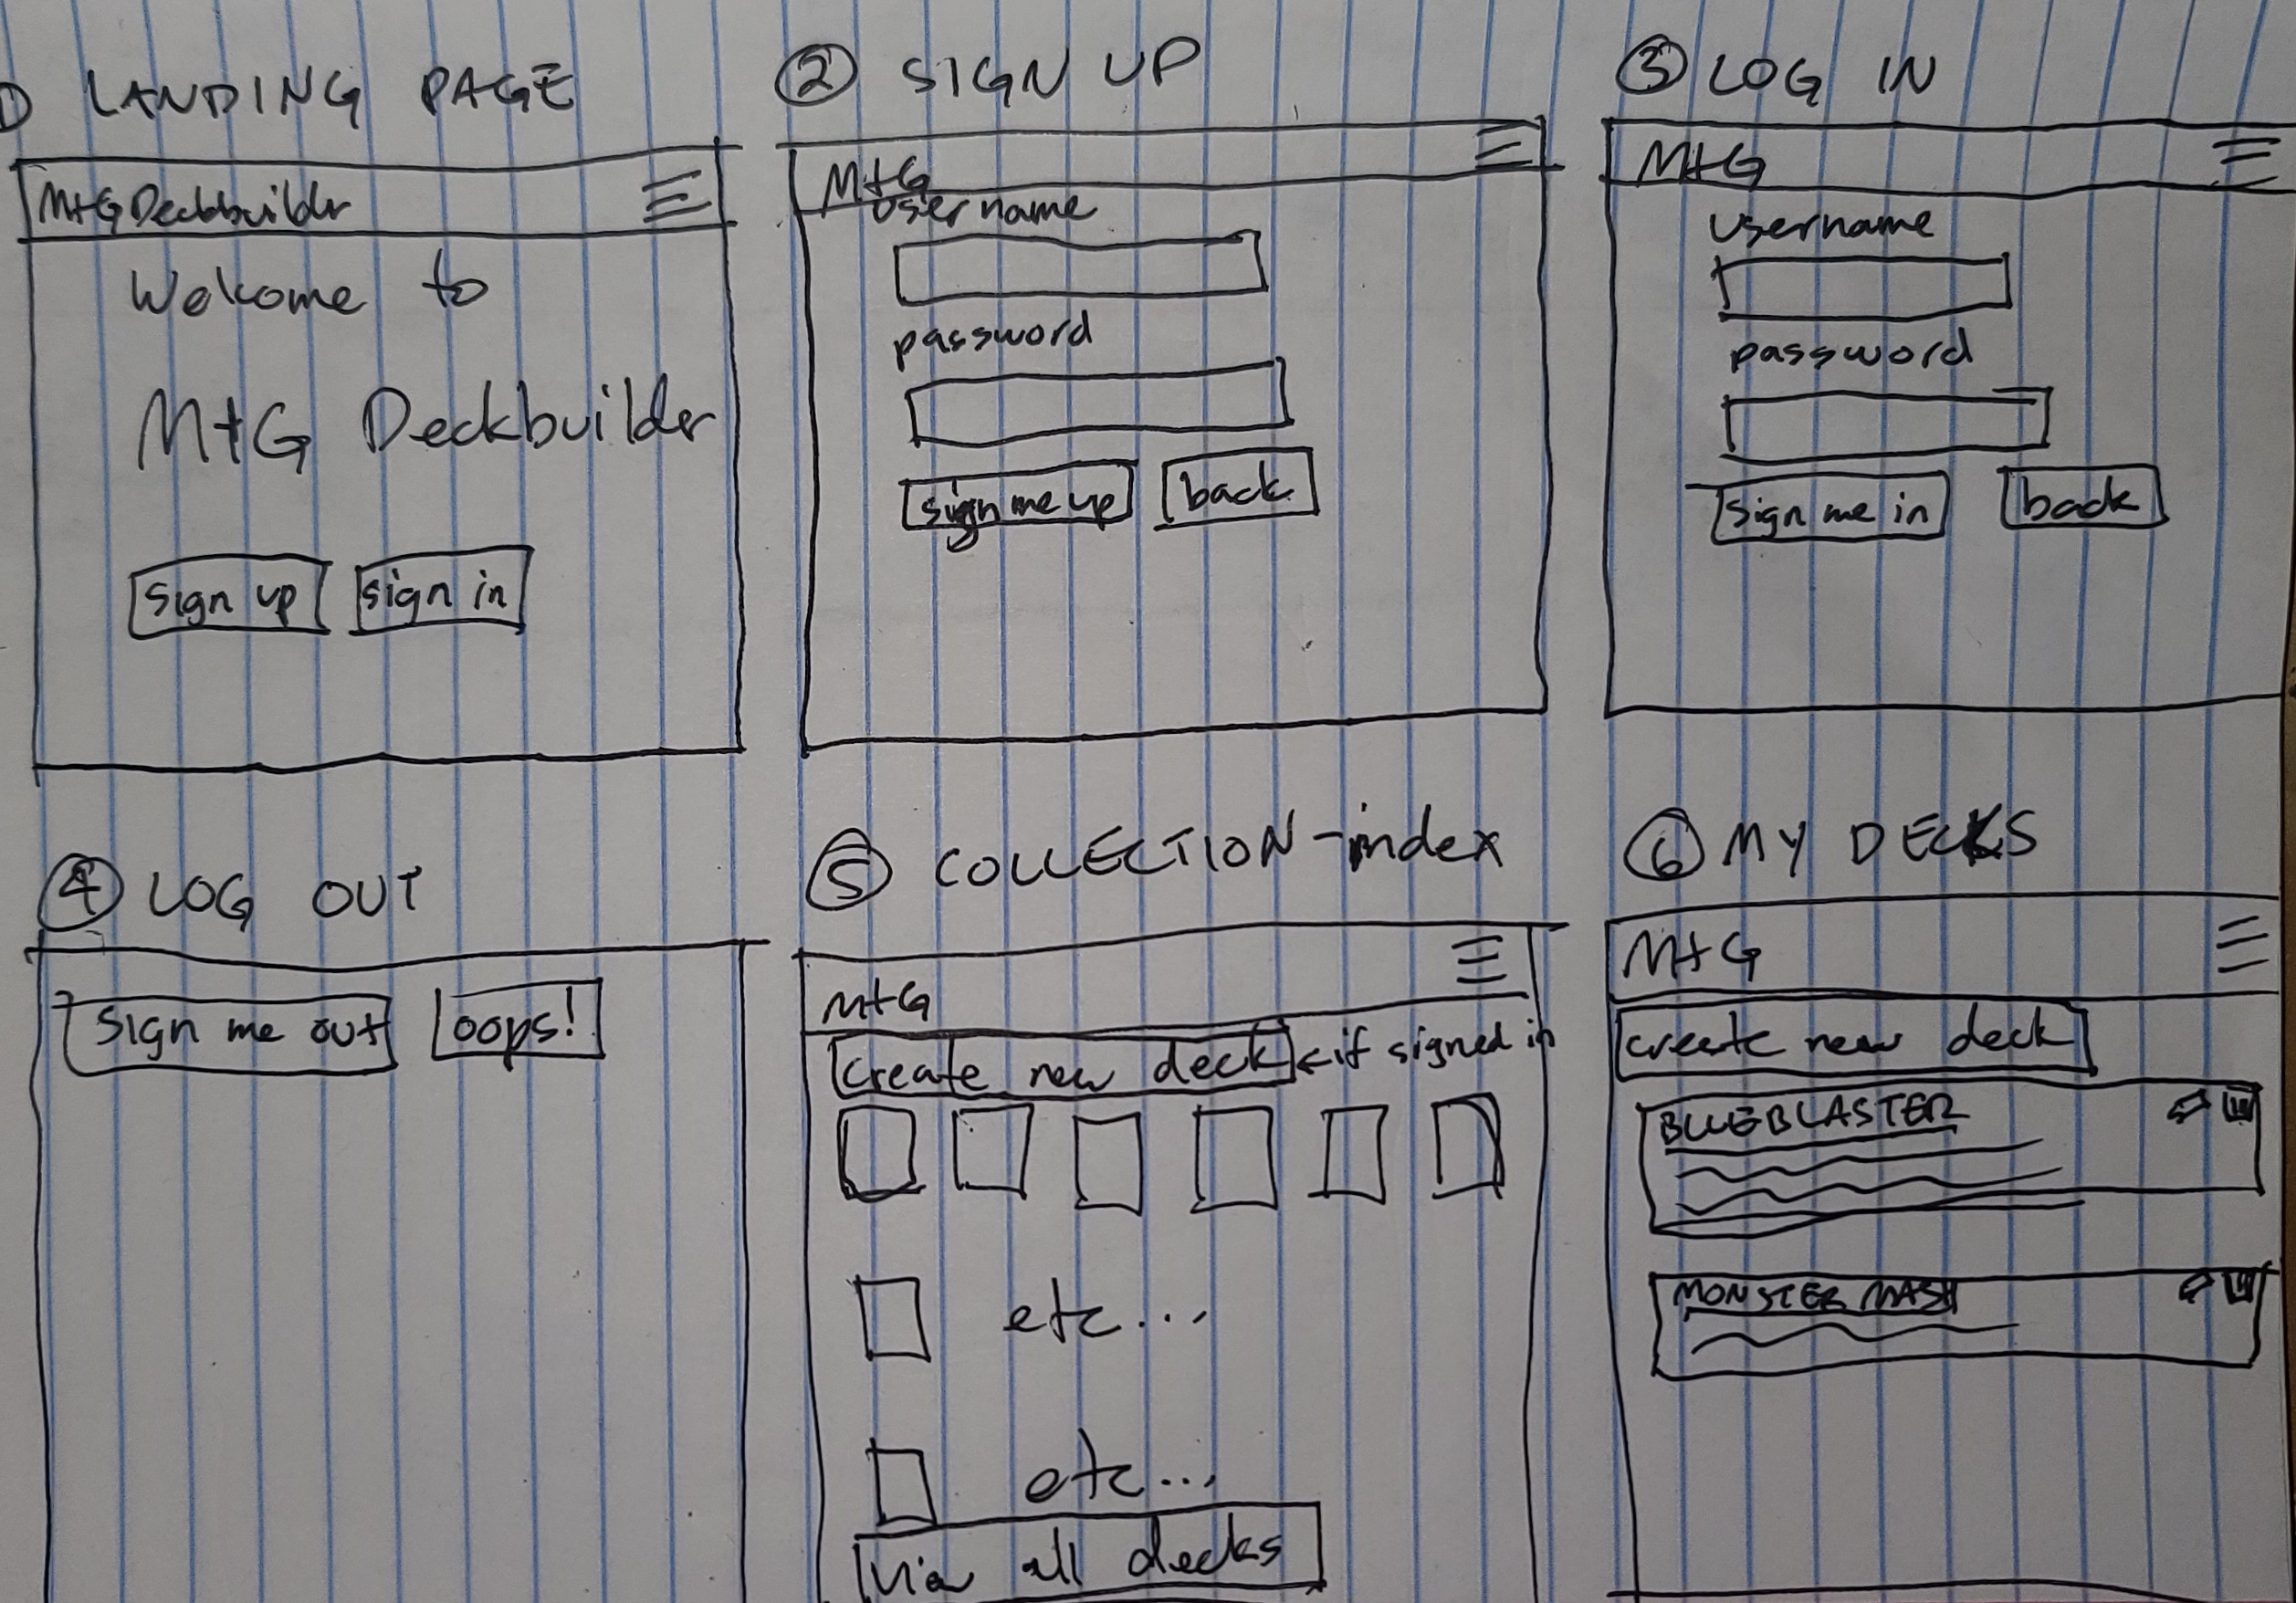 1 LANDING PAGE
MtG Deckbuilder
Welcome to
MtG Deckbuilder
sign up sign in
2 SIGN UP
MtG
username
password
sign me up back
3 LOG IN
MtG
username
password
sign me in back
4 LOG OUT
sign me out oops!
5 COLLECTION - index
MtG
create new deck ← if signed in
etc...
etc...
all decks
6 MY DECKS
MtG
create new deck
BLUEBLASTER
MONSTER MASH